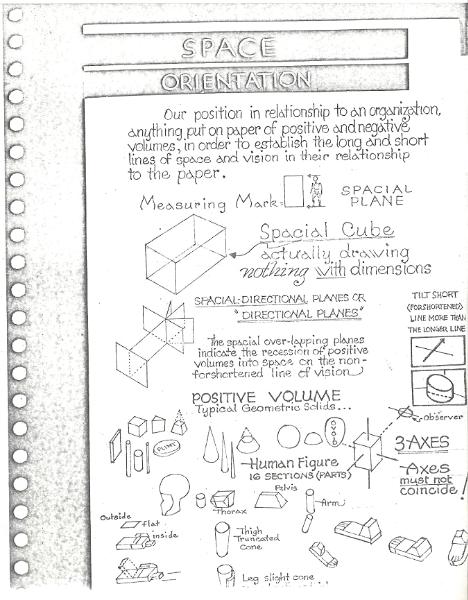 SPACE
ORIENTATION
Our position in relationship to an organization,
anything put on paper of positive and negative
volumes, in order to establish the long and short
lines of space and vision in their relationship
to the paper.
Measuring Mark
SPACIAL
PLANE
Spacial Cube
actually drawing
nothing with dimensions
SPACIAL-DIRECTIONAL PLANES OR
"DIRECTIONAL PLANES"
TILT SHORT
(FORSHORTENED)
LINE MORE THAN
THE LONGER LINE
The spacial over-lapping planes
indicate the recession of positive
volumes into space on the non-
forshortened line of vision
POSITIVE VOLUME
Typical Geometric Solids...
Observer
3-AXES
Axes
must not
coincide!
Human Figure
16 SECTIONS (PARTS)
Pelvis
Thorax
Arm
Outside
flat
inside
Thigh
Truncated
Cone
Leg slight cone